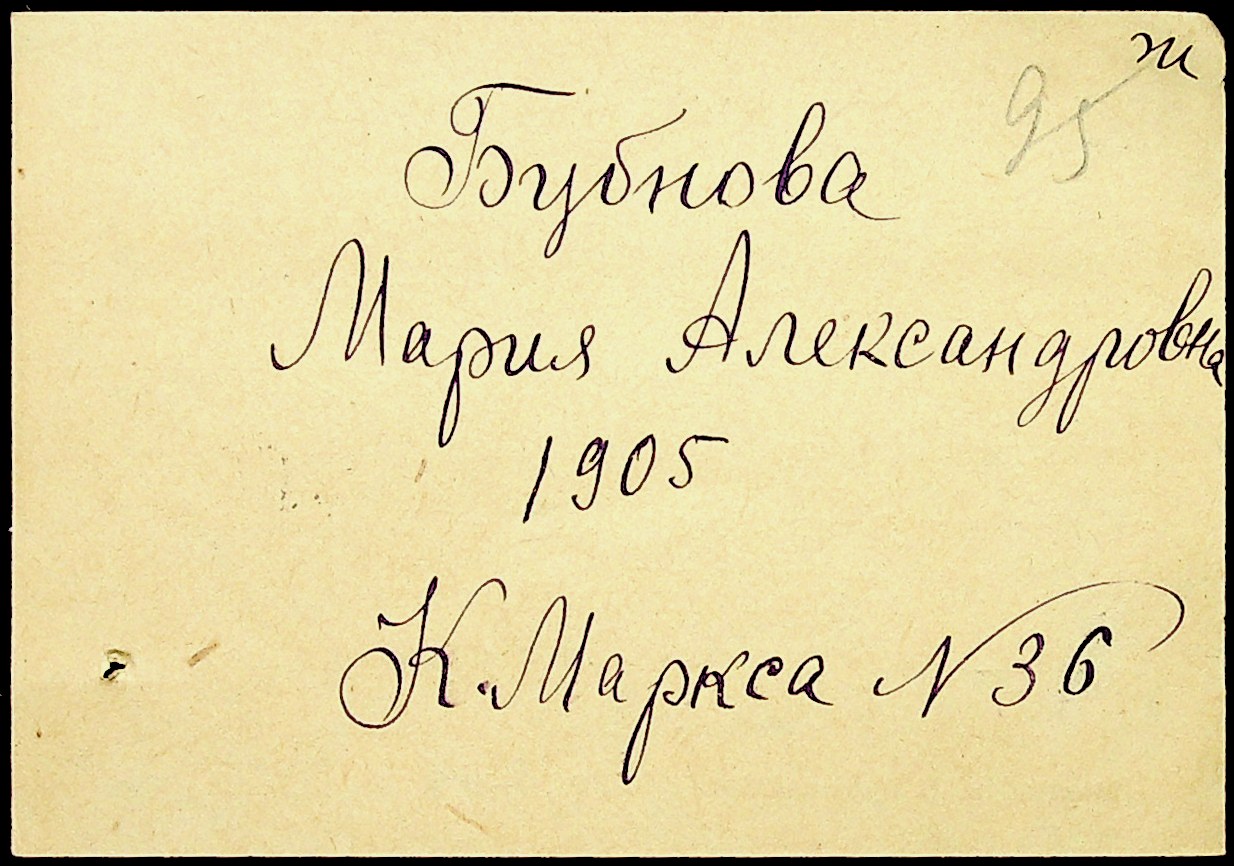 ж
95
Бубнова
Мария Александровна
1905
К. Маркса N 36